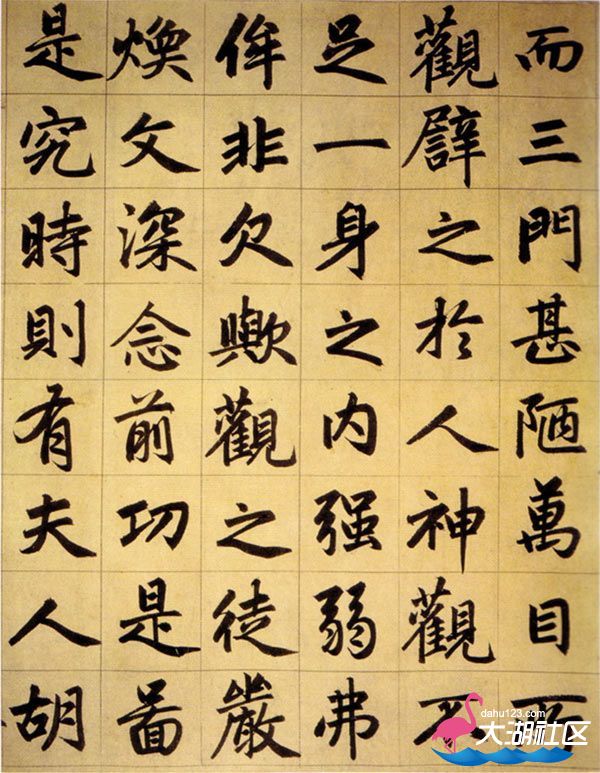 而三門甚陋萬目
觀譬之於人神觀不
足一身之内强弱弗
侔非欠歟觀之徒嚴
煥文深念前功是啚
是究時則有夫人胡
dahu123.com
大湖社区